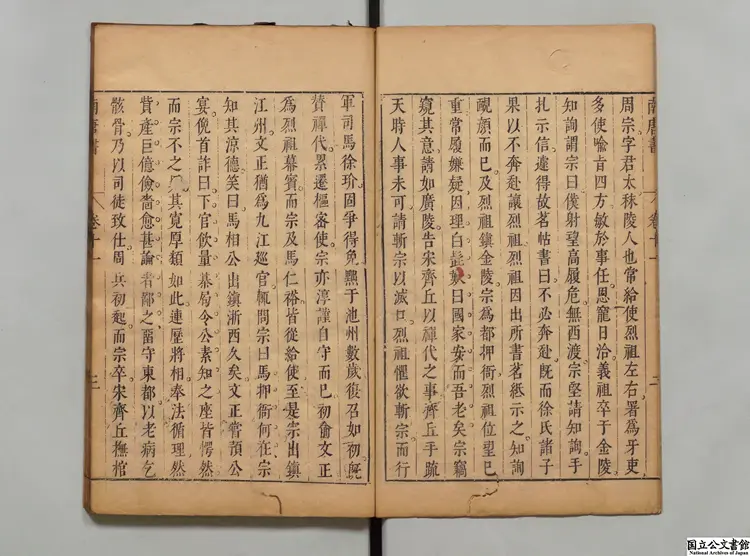 南唐書 卷十一 二
周宗字君太秣陵人也常給使烈祖左右署爲牙吏
多使喻旨四方敏於事任恩寵日洽義祖卒于金陵
知詢謂宗曰僕射望高履危無西渡宗堅請知詢手
扎示信遽得故茗帖書曰不必奔赴旣而徐氏諸子
果以不奔赴讓烈祖烈祖因出所書茗紙示之知詢
靦顔而巳及烈祖鎮金陵宗爲都押衙烈祖位望巳
重常履嫌疑因理白髭歎曰國家安而吾老矣宗竊
窺其意請如廣陵告宋齊丘以禪代之事齊丘手疏
天時人事未可請斬宗以滅口烈祖懼欲斬宗而行
軍司馬徐玠固爭得免黜于池州數歲復召如初旣
賛禪代累遷樞宻使宗亦淳謹自守而巳初俞文正
爲烈祖幕賓而宗及馬仁裕皆從給使至是宗出鎮
江州文正猶爲九江巡官輒問宗曰馬押衙何在宗
知其凉德笑曰馬相公出鎮浙西久矣文正嘗預公
宴俛首詐曰下官飲量棊局令公素知之座皆愕然
而宗不之其寛厚類如此連歷將相奉法循理然
貲產巨億儉嗇愈甚論者鄙之畱守東都以老病乞
骸骨乃以司徒致仕周兵初起而宗卒宋齊丘撫棺
南唐書 卷十一 三
国立公文書館
National Archives of Japan